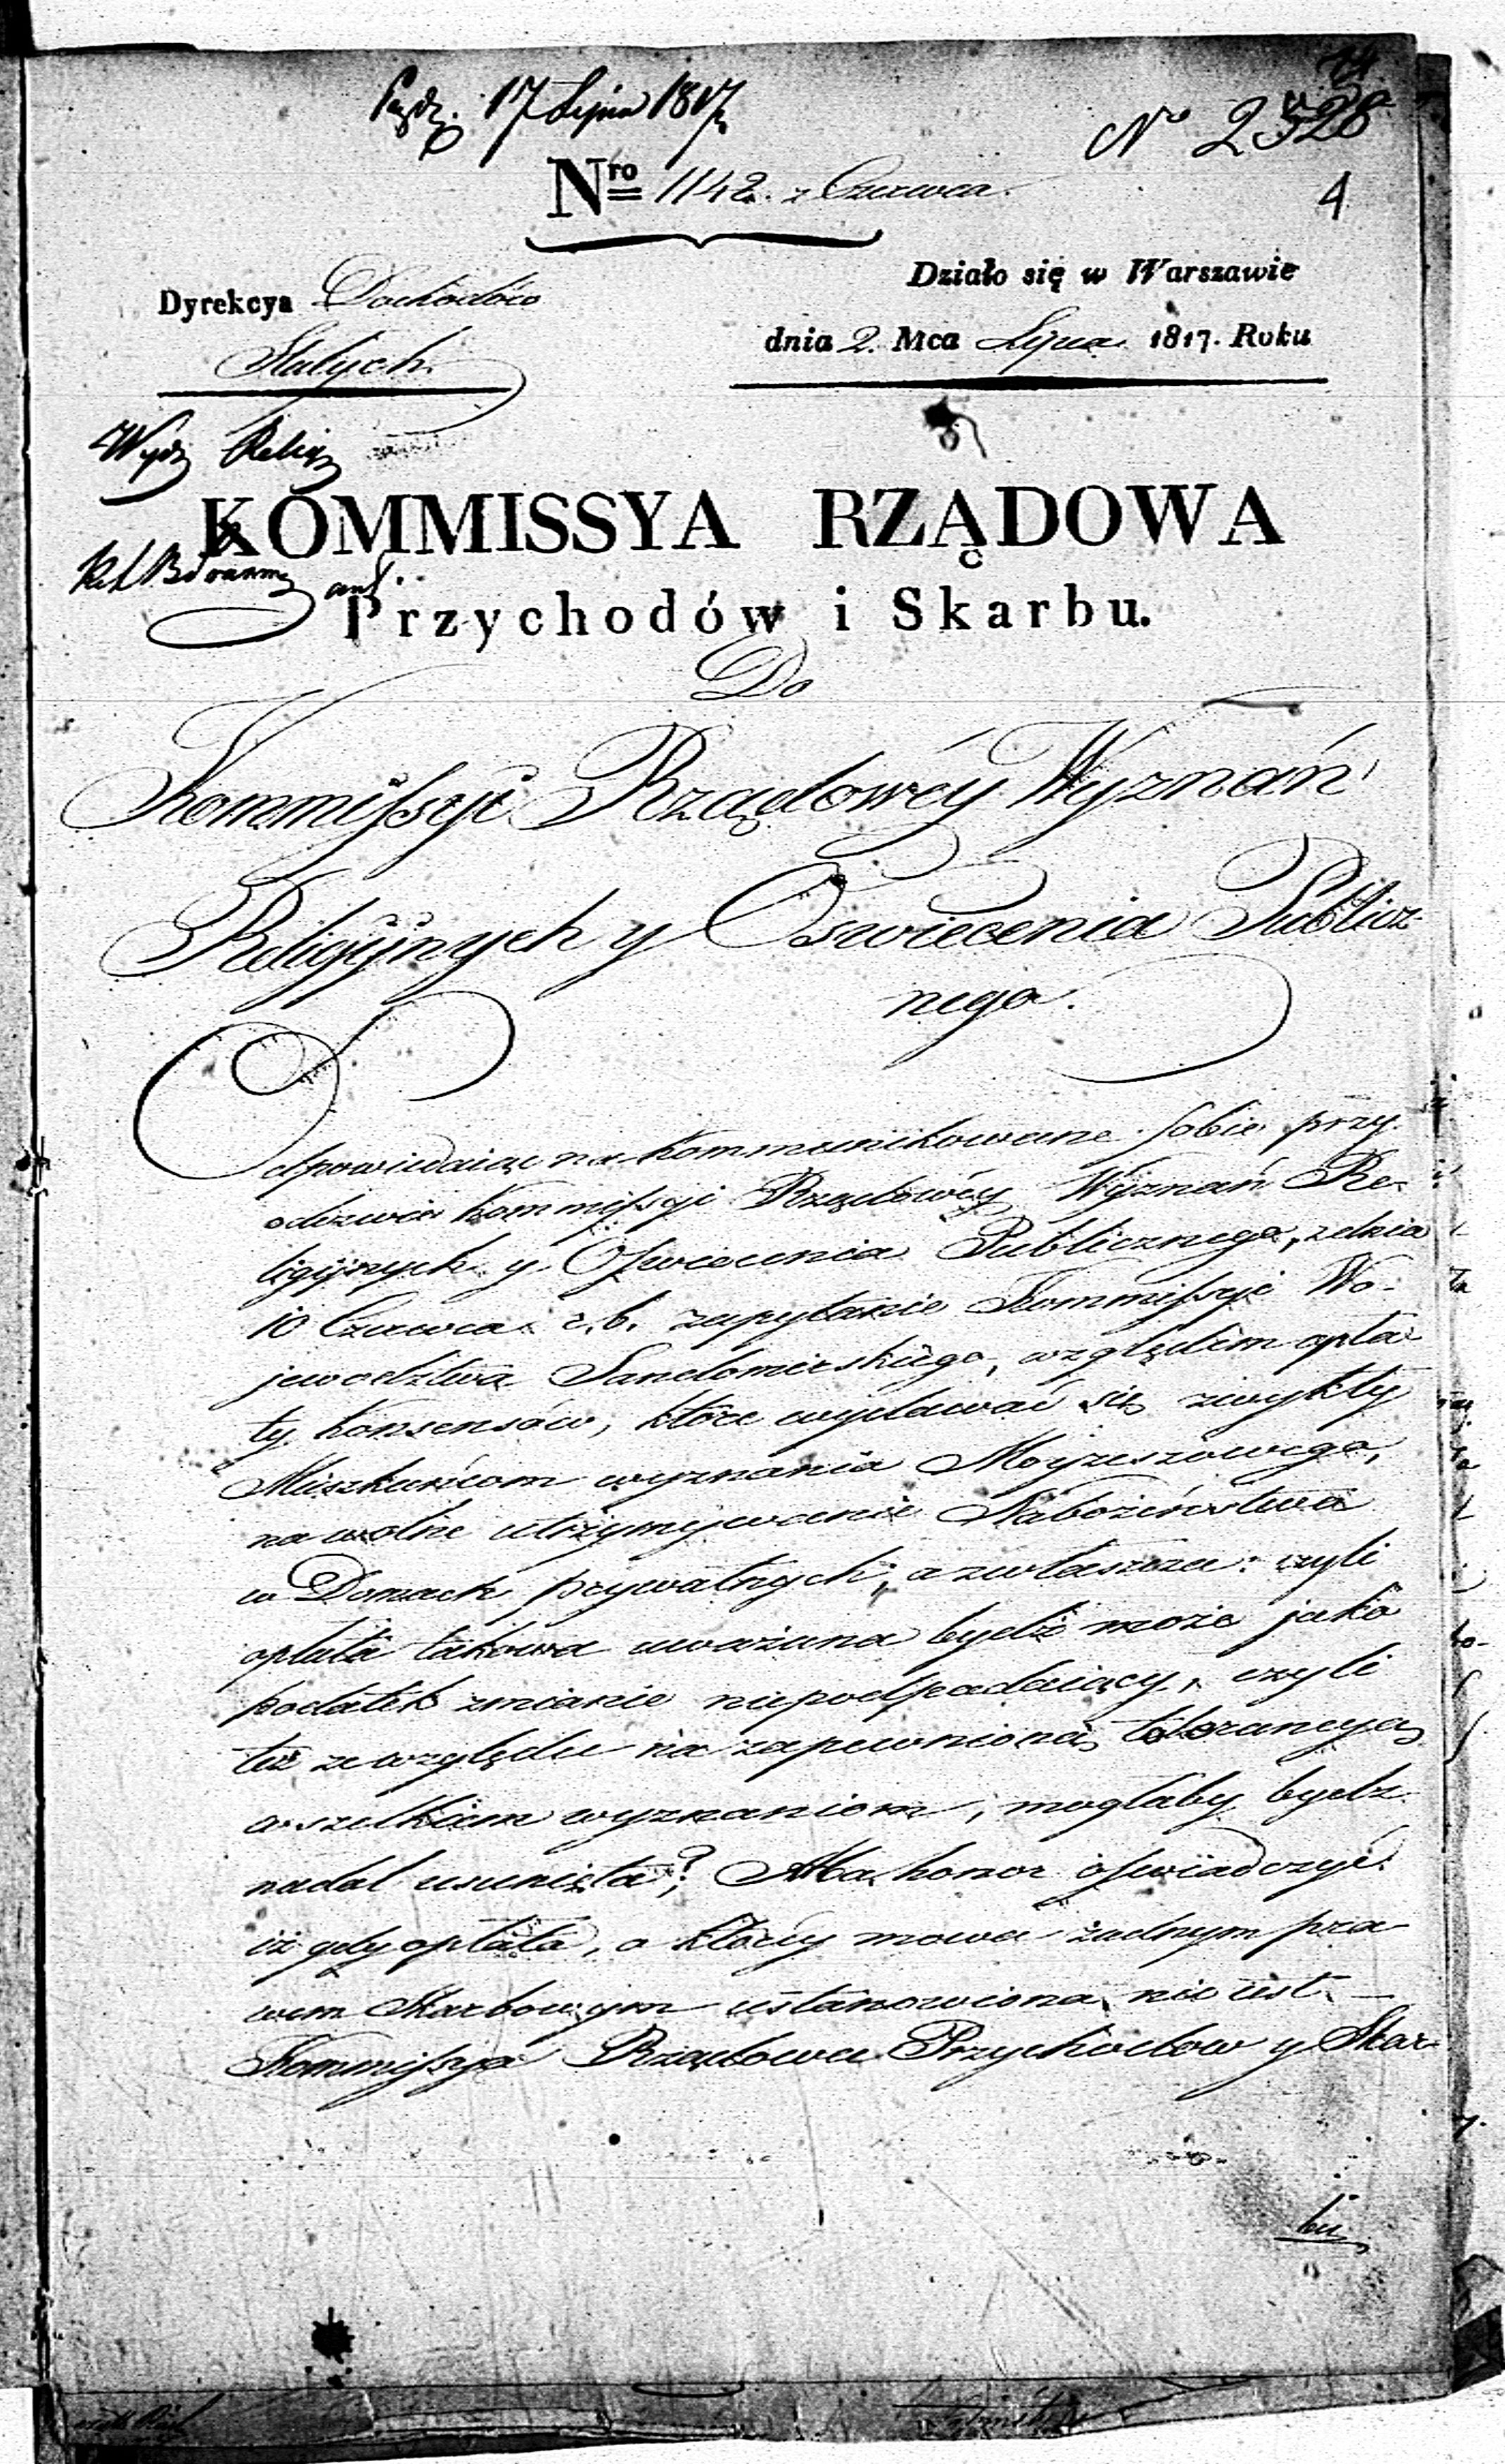 17 Lipca 1817
No 2528
4
Nro 1142. z Czerwca.
Dyrekcya Dochodów
Stałych.
Działo się w Warszawie
dnia 2. Mca Lipca 1817. Roku
Wydz Relig
KOMMISSYA RZĄDOWA
Przychodów i Skarbu.
Do
Kommissyi Rządowéy Wyznań
Religiynych y Oswiecenia Publicz-
nego.
Odpowiedaiąc na kommunikowane sobie przy
odezwie Kommissyi Rządowéy Wyznań Re-
ligiynych y Oswiecenia Publicznego, z dnia
10 Czerwca r. b. zapytanie Kommissyi Wo-
jewodztwa Sandomirskiego, względem opła-
ty konsensów, które wydawać się zwykły
Mieszkańcom wyznania Moyzeszowego,
na wolne utrzymywanie Nabożeństwa
w Domach prywatnych; a zwłaszcza: czyli
opłata takowa uważana bydź może jako
podatek zmianie niepodpadaiący, czyli
też ze względu na zapewnioną tolerancyą
wszelkim wyznaniom, mogłaby bydz
nadal usunięta? Ma honor oswiadczyć
iż gdy opłata, o któréy mowa żadnym pra-
wem Skarbowym ustanowiona nie iest. —
Kommissya Rządowa Przychodow y Skar-
bu